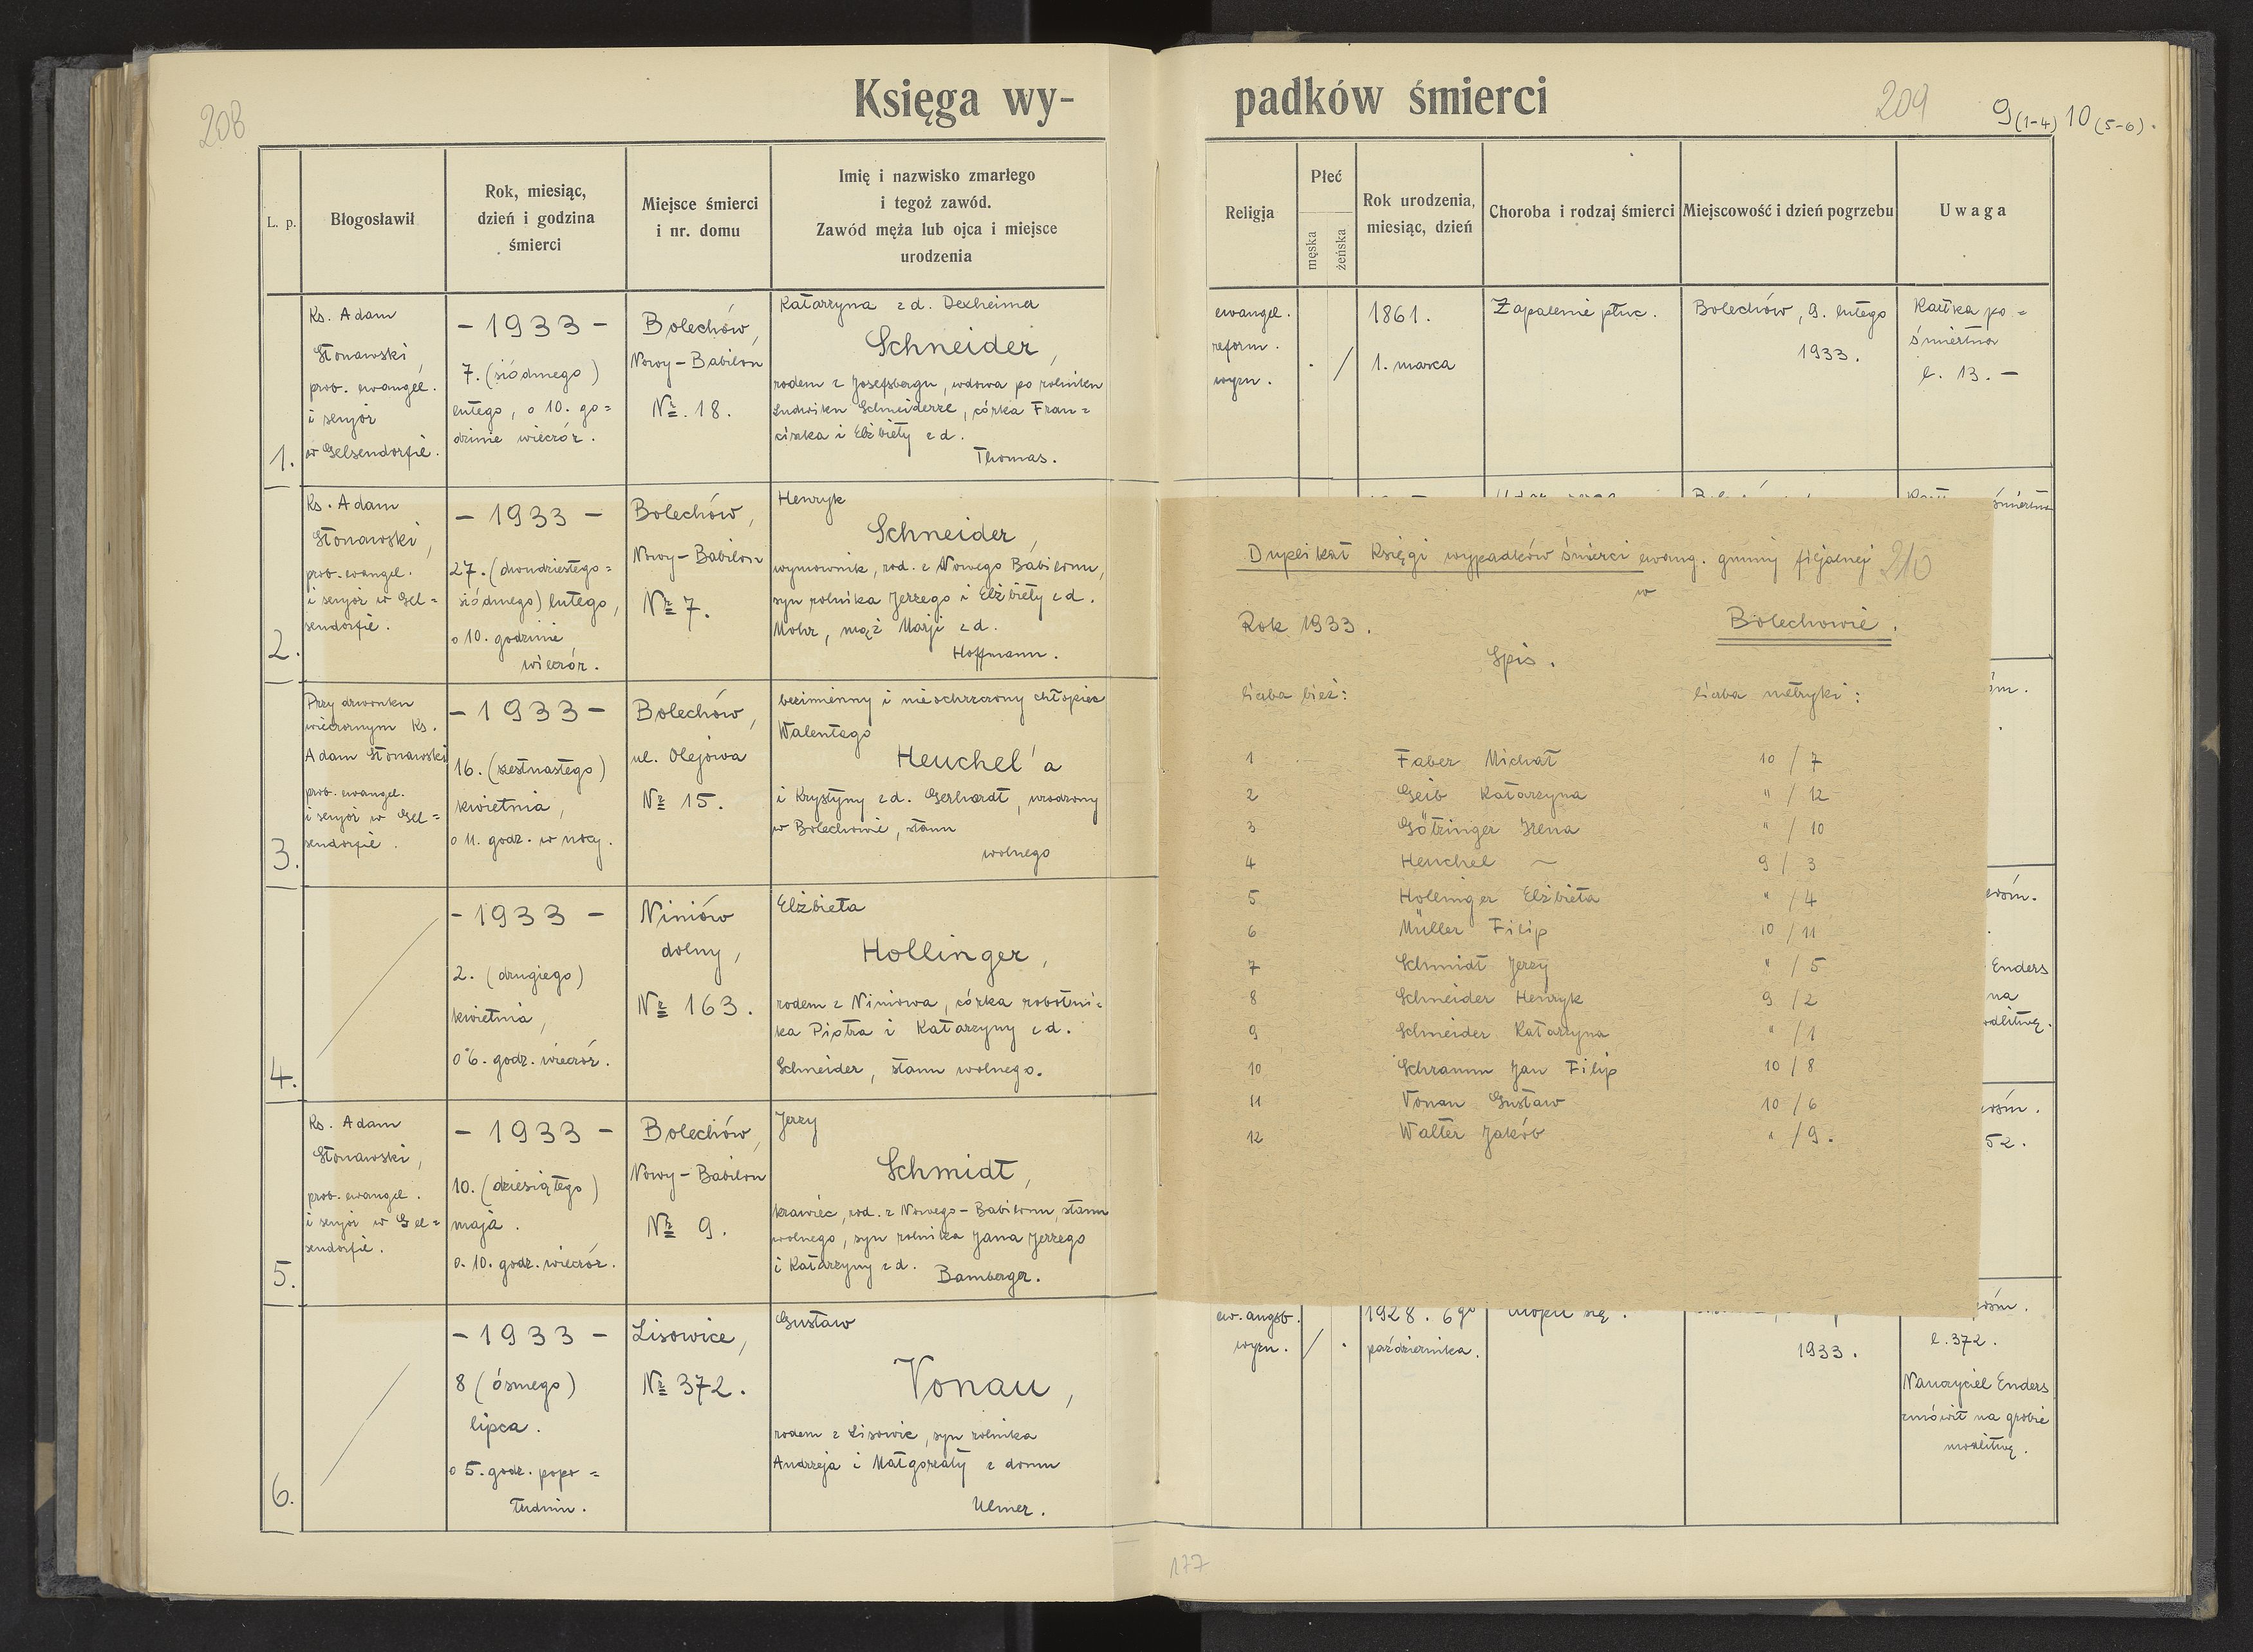 208
Księga wy-
L. p.
Błogosławił
Rok, miesiąc,
dzień i godzina
śmierci
Miejsce śmierci
i nr. domu
Imię i nazwisko zmarłego
i tegoż zawód.
Zawód męża lub ojca i miejsce
urodzenia
1.
Ks. Adam
Stonawski,
prob. ewangel.
i senjor
w Gelsendorfie.
- 1933 -
7. (siódmego)
lutego, o 10. go=
dzinie wieczór.
Bolechów,
Nowy-Babilon
Nr. 18.
Katarzyna z d. Dexheimer
Schneider,
rodem z Josefsbergu, wdowa po rolniku
Ludwiku Schneiderze, córka Fran=
ciszka i Elżbiety z d.
Thomas.
2.
Ks. Adam
Stonawski,
prob. ewangel.
i senjor w Gel=
sendorfie.
- 1933 -
27. (dwudziestego=
siódmego) lutego,
o 10. godzinie
wieczór.
Bolechów,
Nowy-Babilon
Nr 7.
Henryk
Schneider,
wymownik, rod. z Nowego Babilonu,
syn rolnika Jerzego i Elżbiety z d.
Mohr, mąż Marji z d.
Hoffmann.
3.
Przy dzwonku
wieczornym Ks.
Adam Stonawski
prob. ewangel.
i senjor w Gel=
sendorfie.
- 1933 -
16. (szestnastego)
kwietnia,
o 11. godz. w nocy.
Bolechów,
ul. Olejowa
Nr 15.
bezimienny i nieochrzczony chłopiec
Walentego
Heuchel'a
i Krystyny z d. Gerhardt, urodzony
w Bolechowie, stanu
wolnego
4.
- 1933 -
2. (drugiego)
kwietnia,
o 6. godz. wieczór.
Niniów
dolny,
Nr 163.
Elżbieta
Hollinger,
rodem z Niniowa, córka robotni=
ka Piotra i Katarzyny z d.
Schneider, stanu wolnego.
5.
Ks. Adam
Stonawski,
prob. ewangel.
i senjor w Gel=
sendorfie.
- 1933 -
10. (dziesiątego)
maja.
o. 10. godz. wieczór.
Bolechów,
Nowy-Babilon
Nr 9.
Jerzy
Schmidt,
krawiec, rod. z Nowego-Babilonu, stanu
wolnego, syn rolnika Jana Jerzego
i Katarzyny z d. Bamberger.
6.
- 1933 -
8 (ósmego)
lipca.
o 5. godz. popo=
łudniu.
Lisowice,
Nr 372.
Gustaw
Vonau,
rodem z Lisowic, syn rolnika
Andrzeja i Małgorzaty z domu
Ulmer.
padków śmierci
209
9(1-4) 10(5-6).
Religja
Płeć
męska
żeńska
Rok urodzenia,
miesiąc, dzień
Choroba i rodzaj śmierci
Miejscowość i dzień pogrzebu
Uwaga
ewangel.
reform.
wyzn.
. /
1861.
1. marca
Zapalenie płuc.
Bolechów, 9. lutego
1933.
Kartka po=
śmiertna
l. 13. -
śmiertna
Duplikat Księgi wypadków śmierci ewang. gminy filjalnej
210
w
Rok 1933.
Bolechowie.
Spis.
liczba bież:
liczba metryki:
1 Faber Michał 10 / 7
2 Geib Katarzyna " / 12
3 Götzinger Irena " / 10
4 Heuchel ~ 9 / 3
5 Hollinger Elżbieta " / 4
6 Müller Filip 10 / 11
7 Schmidt Jerzy " / 5
8 Schneider Henryk 9 / 2
9 Schneider Katarzyna " / 1
10 Schramm Jan Filip 10 / 8
11 Vonau Gustaw 10 / 6
12 Walter Jakób " / 9.
Enders
na
52.
ew. augsb.
wyzn.
/ .
1928. 6go
października.
1933.
l. 372.
Nauczyciel Enders
zmówił na grobie
modlitwę.
177